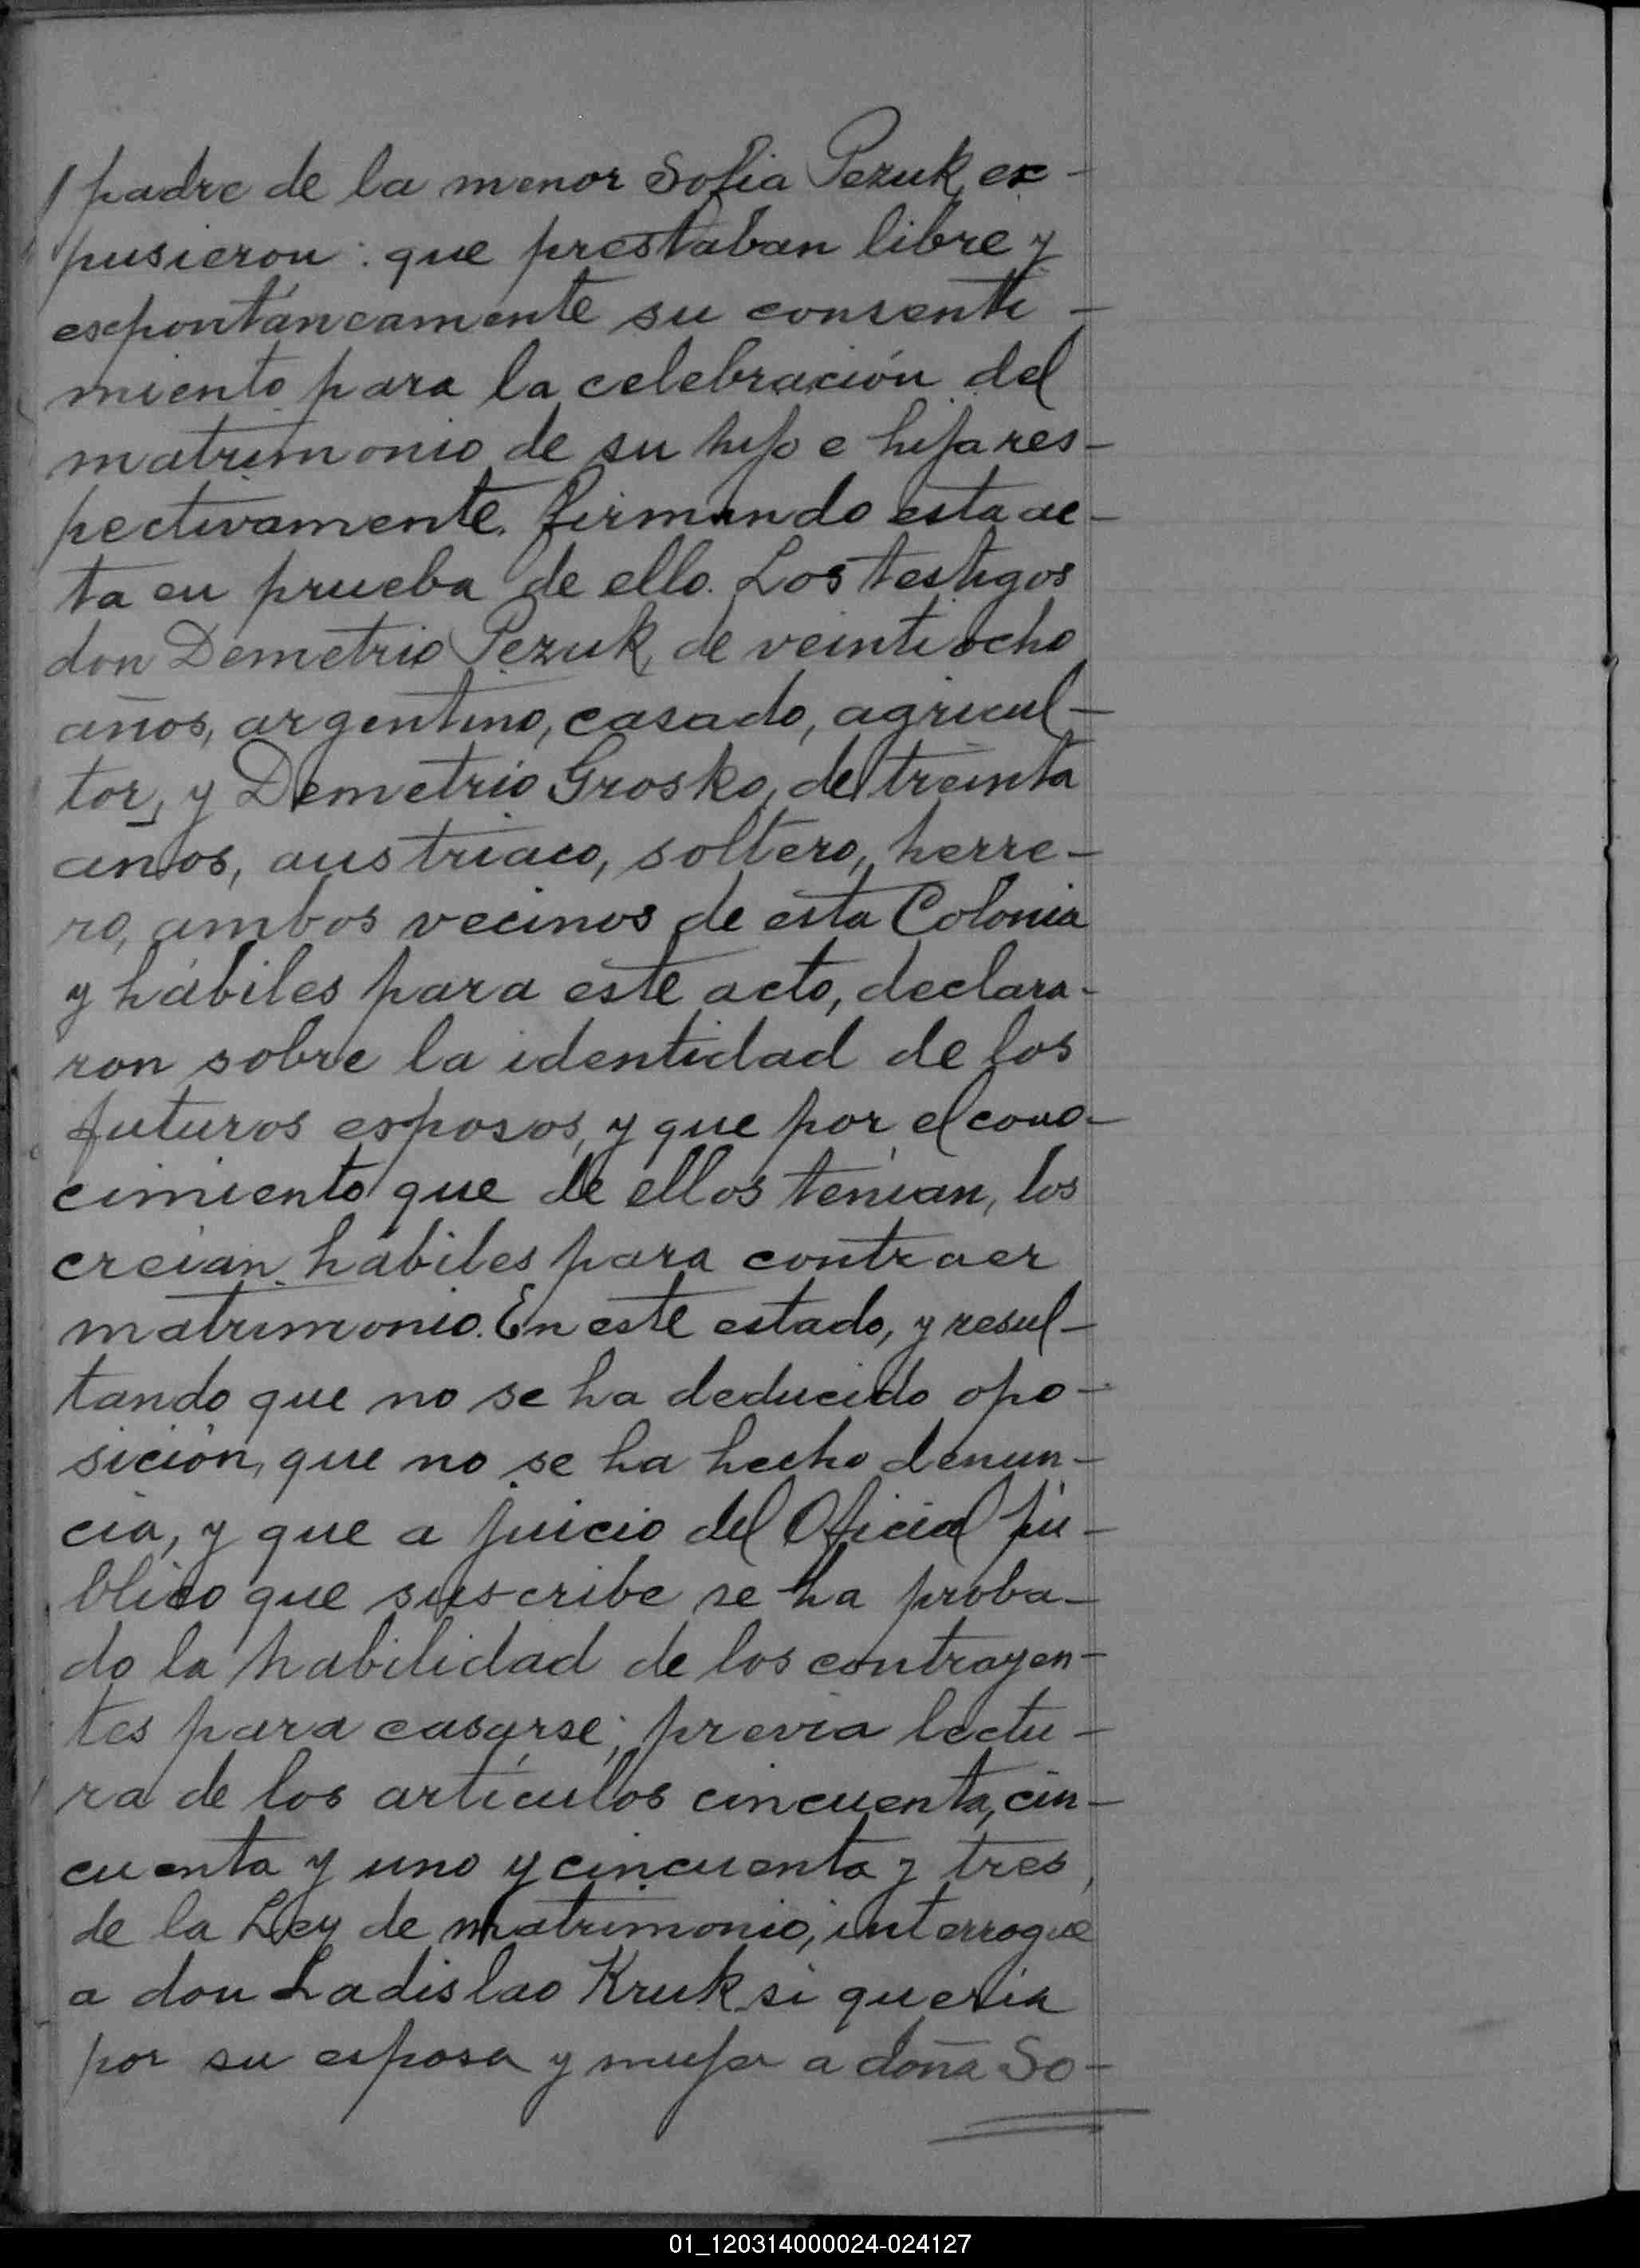 padre de la menor Sofia Pezuk, ex-
pusieron: que prestaban libre y
espontáneamente su consenti-
miento para la celebración del
matrimonio de su hijo e hija res-
pectivamente. firmando esta ac-
ta en prueba de ello. Los testigos
don Demetrio Pezuk, de veintiocho
años, argentino, casado, agricul-
tor, y Demetrio Grosko, de treinta
años, austriaco, soltero, herre-
ro, ambos vecinos de esta Colonia
y hábiles para este acto, declara-
ron sobre la identidad de los
futuros esposos, y que por el cono-
cimiento que de ellos tenían, los
creían hábiles para contraer
matrimonio. En este estado, y resul-
tando que no se ha deducido opo-
sición, que no se ha hecho denun-
cia, y que a juicio del Oficial pú-
blico que suscribe se ha proba-
do la habilidad de los contrayen-
tes para casarse; previa lectu-
ra de los artículos cincuenta, cin-
cuenta y uno y cincuenta y tres,
de la Ley de matrimonio, interrogué
a don Ladislao Kruk si quería
por su esposa y mujer a doña So-
01_120314000024-024127